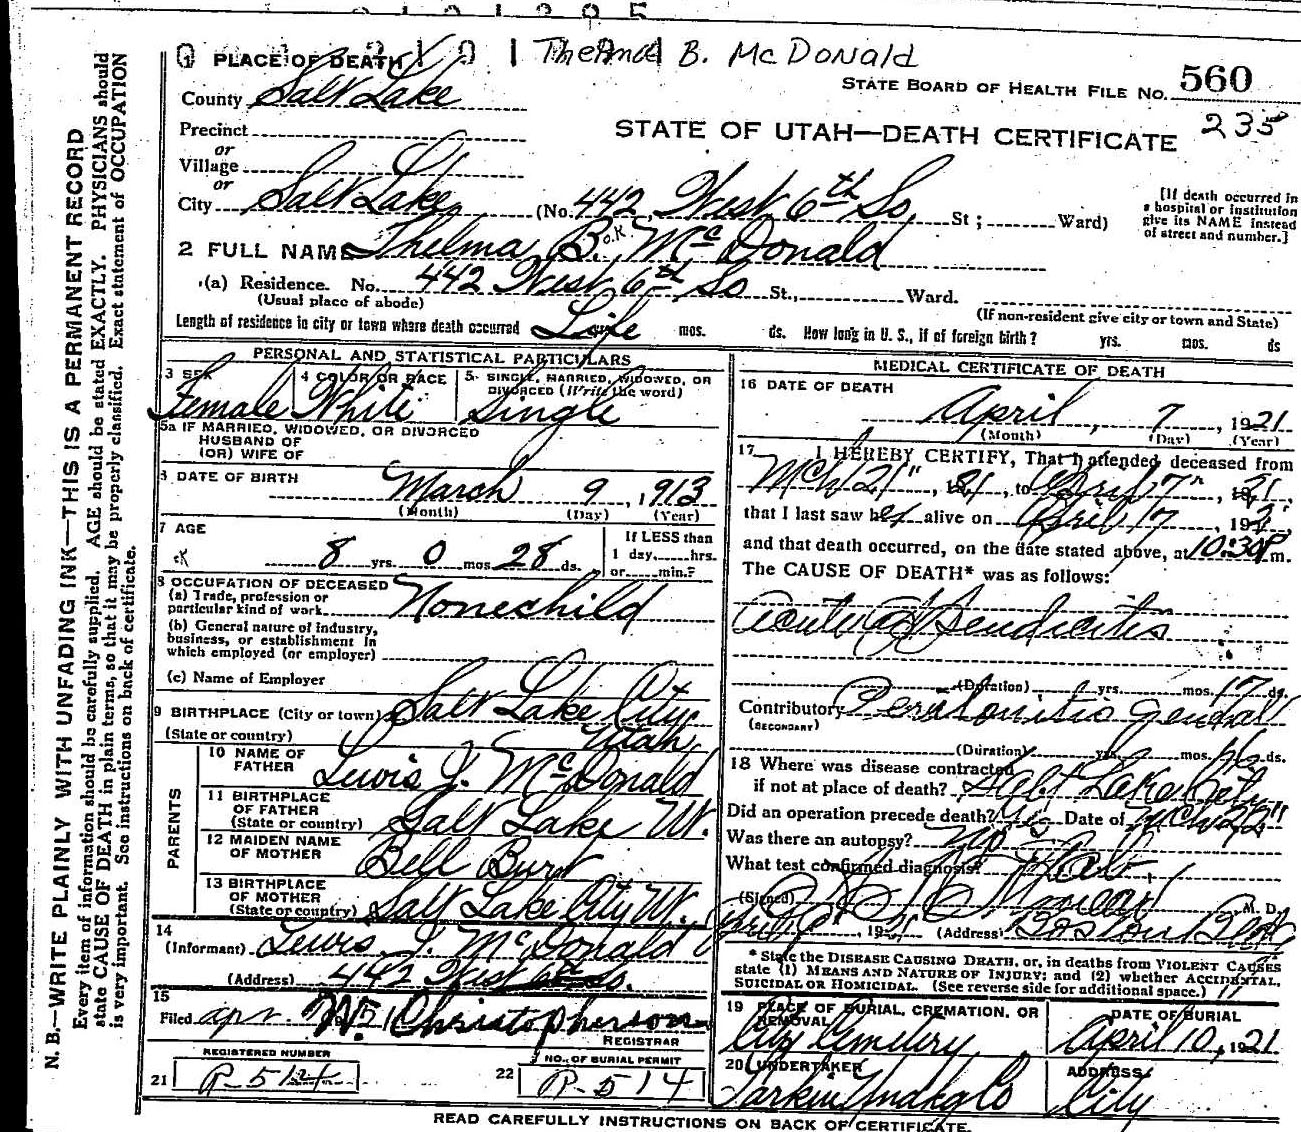 Thelma B. McDonald
PLACE OF DEATH
STATE BOARD OF HEALTH FILE No. 560
235
County Salt Lake
STATE OF UTAH—DEATH CERTIFICATE
Precinct
or
Village
or
City Salt Lake (No. 442 West 6th So. St; Ward)
[If death occurred in a hospital or institution give its NAME instead of street and number.]
2 FULL NAME Thelma B. McDonald
(a) Residence. No. 442 West 6th So St., Ward.
(Usual place of abode)
(If non-resident give city or town and State)
Length of residence in city or town where death occurred Life mos. ds. How long in U. S., if of foreign birth? yrs. mos. ds
PERSONAL AND STATISTICAL PARTICULARS
3 SEX Female
4 COLOR OR RACE White
5 SINGLE, MARRIED, WIDOWED, OR DIVORCED (Write the word) Single
5a IF MARRIED, WIDOWED, OR DIVORCED
HUSBAND OF
(OR) WIFE OF
DATE OF BIRTH March 9, 1913
(Month) (Day) (Year)
7 AGE
8 yrs. 0 mos 28 ds.
If LESS than
1 day, hrs.
or min.?
8 OCCUPATION OF DECEASED
(a) Trade, profession or
particular kind of work None child
(b) General nature of industry,
business, or establishment in
which employed (or employer)
(c) Name of Employer
9 BIRTHPLACE (City or town) Salt Lake City
(State or country) Utah
PARENTS
10 NAME OF FATHER Lewis J. McDonald
11 BIRTHPLACE OF FATHER (State or country) Salt Lake Ut.
12 MAIDEN NAME OF MOTHER Bell Burt
13 BIRTHPLACE OF MOTHER (State or country) Salt Lake City Ut.
14
(Informant) Lewis J. McDonald
(Address) 442 West 6th So.
15
Filed apr. W. Christopherson
REGISTRAR
REGISTERED NUMBER
21 R-514
NO. OF BURIAL PERMIT
22 R-514
MEDICAL CERTIFICATE OF DEATH
16 DATE OF DEATH
April, 7, 1921
(Month) (Day) (Year)
17 I HEREBY CERTIFY, That I attended deceased from
Mch 21", 1921, to April 7", 1921,
that I last saw her alive on April 7, 192
and that death occurred, on the date stated above, at 10:30 P m.
The CAUSE OF DEATH* was as follows:
Acute Appendicitis
(Duration) yrs. mos. 17 ds.
Contributory Peritonitis General
(SECONDARY)
(Duration) yrs. mos. 16 ds.
18 Where was disease contracted
if not at place of death? Salt Lake City
Did an operation precede death? Yes Date of Mch 22"
Was there an autopsy? No
What test confirmed diagnosis? Lab.
(Signed) M. D.
April, 1921 (Address) Boston Bldg
* State the DISEASE CAUSING DEATH, or, in deaths from VIOLENT CAUSES
state (1) MEANS AND NATURE OF INJURY; and (2) whether ACCIDENTAL,
SUICIDAL OR HOMICIDAL. (See reverse side for additional space.)
19 PLACE OF BURIAL, CREMATION, OR REMOVAL
City Cemetery
DATE OF BURIAL
April 10, 1921
20 UNDERTAKER
Larkin Undtg Co
ADDRESS
City
READ CAREFULLY INSTRUCTIONS ON BACK OF CERTIFICATE.
N. B.—WRITE PLAINLY WITH UNFADING INK—THIS IS A PERMANENT RECORD
Every item of information should be carefully supplied. AGE should be stated EXACTLY. PHYSICIANS should
state CAUSE OF DEATH in plain terms, so that it may be properly classified. Exact statement of OCCUPATION
is very important. See instructions on back of certificate.